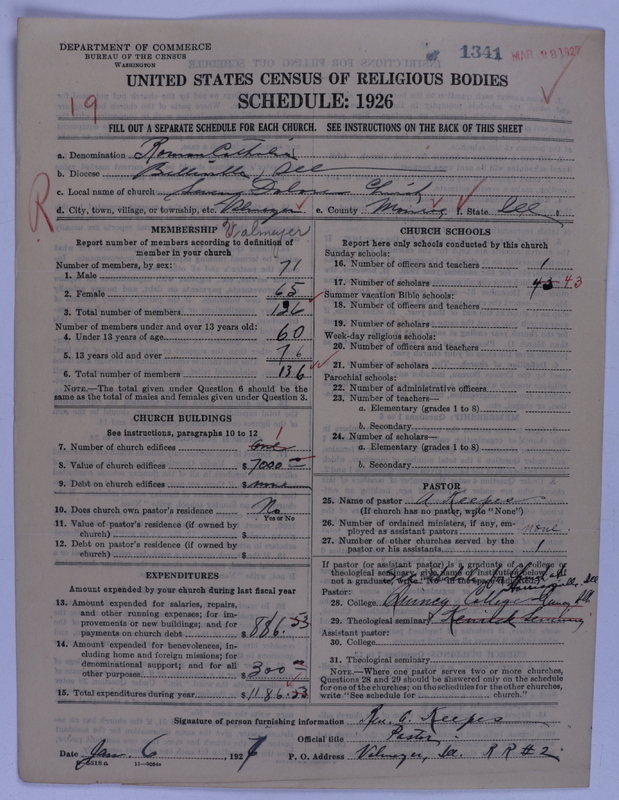 DEPARTMENT OF COMMERCE
BUREAU OF THE CENSUS
WASHINGTON
1341 MAR 28 1927
UNITED STATES CENSUS OF RELIGIOUS BODIES
SCHEDULE: 1926
19
FILL OUT A SEPARATE SCHEDULE FOR EACH CHURCH. SEE INSTRUCTIONS ON THE BACK OF THIS SHEET
a. Denomination Roman Catholic
b. Diocese Belleville, Ill
c. Local name of church Seven Dolors Church
R
d. City, town, village, or township, etc. Valmeyer e. County Monroe f. State Ill
MEMBERSHIP Valmeyer
Report number of members according to definition of member in your church
Number of members, by sex:
1. Male 71
2. Female 65
3. Total number of members 136
Number of members under and over 13 years old:
4. Under 13 years of age 60
5. 13 years old and over 76
6. Total number of members 136
NOTE.—The total given under Question 6 should be the
same as the total of males and females given under Question 3.
CHURCH BUILDINGS
See instructions, paragraphs 10 to 12
7. Number of church edifices one 1
8. Value of church edifices $ 7000
9. Debt on church edifices $ none
10. Does church own pastor's residence No
Yes or No
11. Value of pastor's residence (if owned by
church) $
12. Debt on pastor's residence (if owned by
church) $
EXPENDITURES
Amount expended by your church during last fiscal year
13. Amount expended for salaries, repairs,
and other running expenses; for im-
provements or new buildings; and for
payments on church debt $ 886.53
14. Amount expended for benevolences, in-
cluding home and foreign missions; for
denominational support; and for all
other purposes $ 300
15. Total expenditures during year $ 1186.53
CHURCH SCHOOLS
Report here only schools conducted by this church
Sunday schools:
16. Number of officers and teachers 1
17. Number of scholars 43 43
Summer vacation Bible schools:
18. Number of officers and teachers
19. Number of scholars
Week-day religious schools:
20. Number of officers and teachers
21. Number of scholars
Parochial schools:
22. Number of administrative officers
23. Number of teachers—
a. Elementary (grades 1 to 8)
b. Secondary
24. Number of scholars—
a. Elementary (grades 1 to 8)
b. Secondary
PASTOR
25. Name of pastor A Keepes
(If church has no pastor, write "None")
26. Number of ordained ministers, if any, em-
ployed as assistant pastors none
27. Number of other churches served by the
pastor or his assistants 1
If pastor (or assistant pastor) is a graduate of a college or
theological seminary, give name of institution below; if
not a graduate, write "No" in the space
Pastor:
28. College Quincy College Quincy Ill.
29. Theological seminary Kenrick Seminary
Assistant pastor:
30. College
31. Theological seminary
NOTE.—Where one pastor serves two or more churches,
Questions 28 and 29 should be answered only on the schedule
for one of the churches; on the schedules for the other churches,
write "See schedule for church."
Signature of person furnishing information Rev. A. Keepes
Official title Pastor
Date Jan 6 1927 P. O. Address Valmeyer, Ill. R R #2
11—9264c